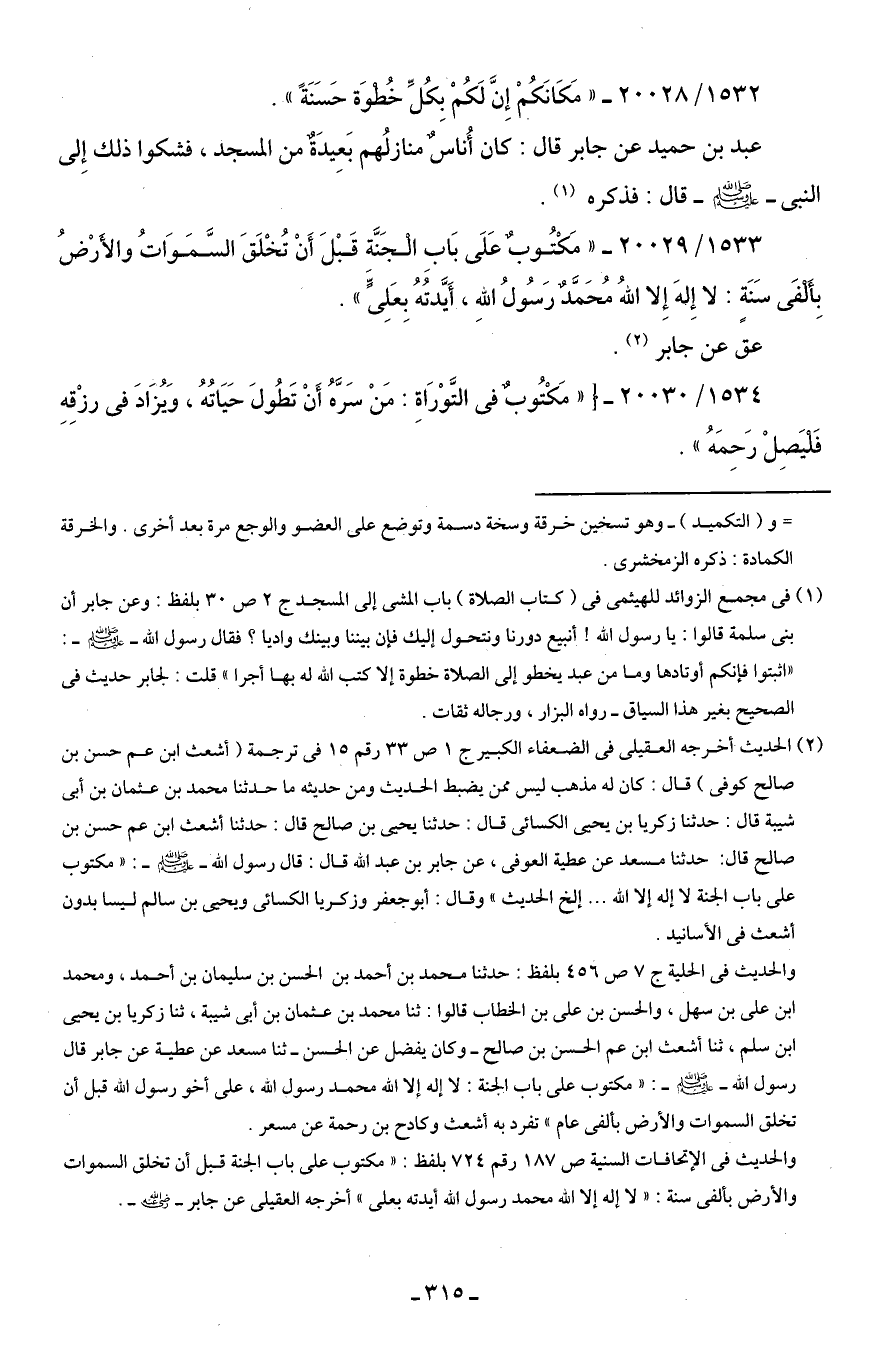 ١٥٣٢/ ٢٠٠٢٨ ـ « مَكَانَكُمْ إِنَّ لَكُمْ بِكُلِّ خُطْوَة حَسَنَةً » .
عبد بن حميد عن جابر قال : كان أُناسٌ منازلُهم بَعيدَةٌ من المسجد ، فشكوا ذلك إلى
النبى ـ ﷺ ـ قال : فذكره (١) .
١٥٣٣/ ٢٠٠٢٩ ـ « مَكْتُوبٌ عَلَى بَابِ الْجَنَّةِ قَبْلَ أَنْ تُخْلَقَ السَّمَوَاتُ والأَرْضُ
بِأَلْفَى سَنَةٍ : لا إِلهَ إِلا اللهُ مُحَمَّدٌ رَسُولُ اللهِ ، أَيَّدتُهُ بِعَلِىٍّ » .
عق عن جابر (٢) .
١٥٣٤/ ٢٠٠٣٠ ـ { « مَكْتُوبٌ فى التَّوْرَاةِ : مَنْ سَرَّهُ أَنْ تَطُولَ حَيَاتُهُ ، وَيُزَادَ فى رِزْقِهِ
فَلْيَصِلْ رَحِمَهُ » .
= و ( التكميد ) ـ وهو تسخين خرقة وسخة دسمة وتوضع على العضو والوجع مرة بعد أخرى . والخرقة
الكمادة : ذكره الزمخشرى .
(١) فى مجمع الزوائد للهيثمى فى ( كتاب الصلاة ) باب المشى إلى المسجد ج ٢ ص ٣٠ بلفظ : وعن جابر أن
بنى سلمة قالوا : يا رسول الله ! أنبيع دورنا ونتحول إليك فإن بيننا وبينك واديا ؟ فقال رسول الله ـ ﷺ ـ :
«اثبتوا فإنكم أوتادها وما من عبد يخطو إلى الصلاة خطوة إلا كتب الله له بها أجرا » قلت : لجابر حديث فى
الصحيح بغير هذا السياق ـ رواه البزار ، ورجاله ثقات .
(٢) الحديث أخرجه العقيلى فى الضعفاء الكبير ج ١ ص ٣٣ رقم ١٥ فى ترجمة ( أشعث ابن عم حسن بن
صالح كوفى ) قال : كان له مذهب ليس ممن يضبط الحديث ومن حديثه ما حدثنا محمد بن عثمان بن أبى
شيبة قال : حدثنا زكريا بن يحيى الكسائى قال : حدثنا يحيى بن صالح قال : حدثنا أشعث ابن عم حسن بن
صالح قال: حدثنا مسعد عن عطية العوفى ، عن جابر بن عبد الله قال : قال رسول الله ـ ﷺ ـ : « مكتوب
على باب الجنة لا إله إلا الله ... إلخ الحديث » وقال : أبوجعفر وزكريا الكسائى ويحيى بن سالم ليسا بدون
أشعث فى الأسانيد .
والحديث فى الحلية ج ٧ ص ٤٥٦ بلفظ : حدثنا محمد بن أحمد بن الحسن بن سليمان بن أحمد ، ومحمد
ابن على بن سهل ، والحسن بن على بن الخطاب قالوا : ثنا محمد بن عثمان بن أبى شيبة ، ثنا زكريا بن يحيى
ابن سلم ، ثنا أشعث ابن عم الحسن بن صالح ـ وكان يفضل عن الحسن ـ ثنا مسعد عن عطية عن جابر قال
رسول الله ـ ﷺ ـ : « مكتوب على باب الجنة : لا إله إلا الله محمد رسول الله ، على أخو رسول الله قبل أن
تخلق السموات والأرض بألفى عام » تفرد به أشعث وكادح بن رحمة عن مسعر .
والحديث فى الإتحافات السنية ص ١٨٧ رقم ٧٢٤ بلفظ : « مكتوب على باب الجنة قبل أن تخلق السموات
والأرض بألفى سنة : « لا إله إلا الله محمد رسول الله أيدته بعلى » أخرجه العقيلى عن جابر ـ رضي الله عنه ـ .
ـ ٣١٥ ـ